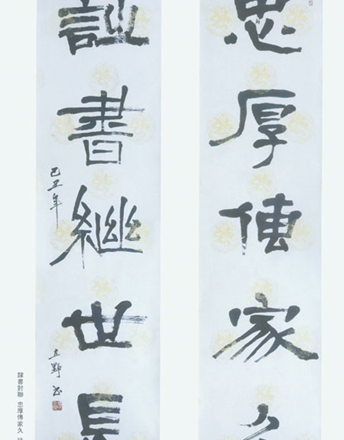 忠厚傳家久
詩書繼世長
己丑年
隸書對聯 忠厚傳家久